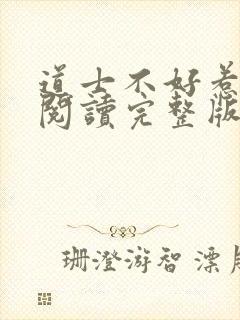 道士不好惹
閱讀完整版
珊澄游智漂